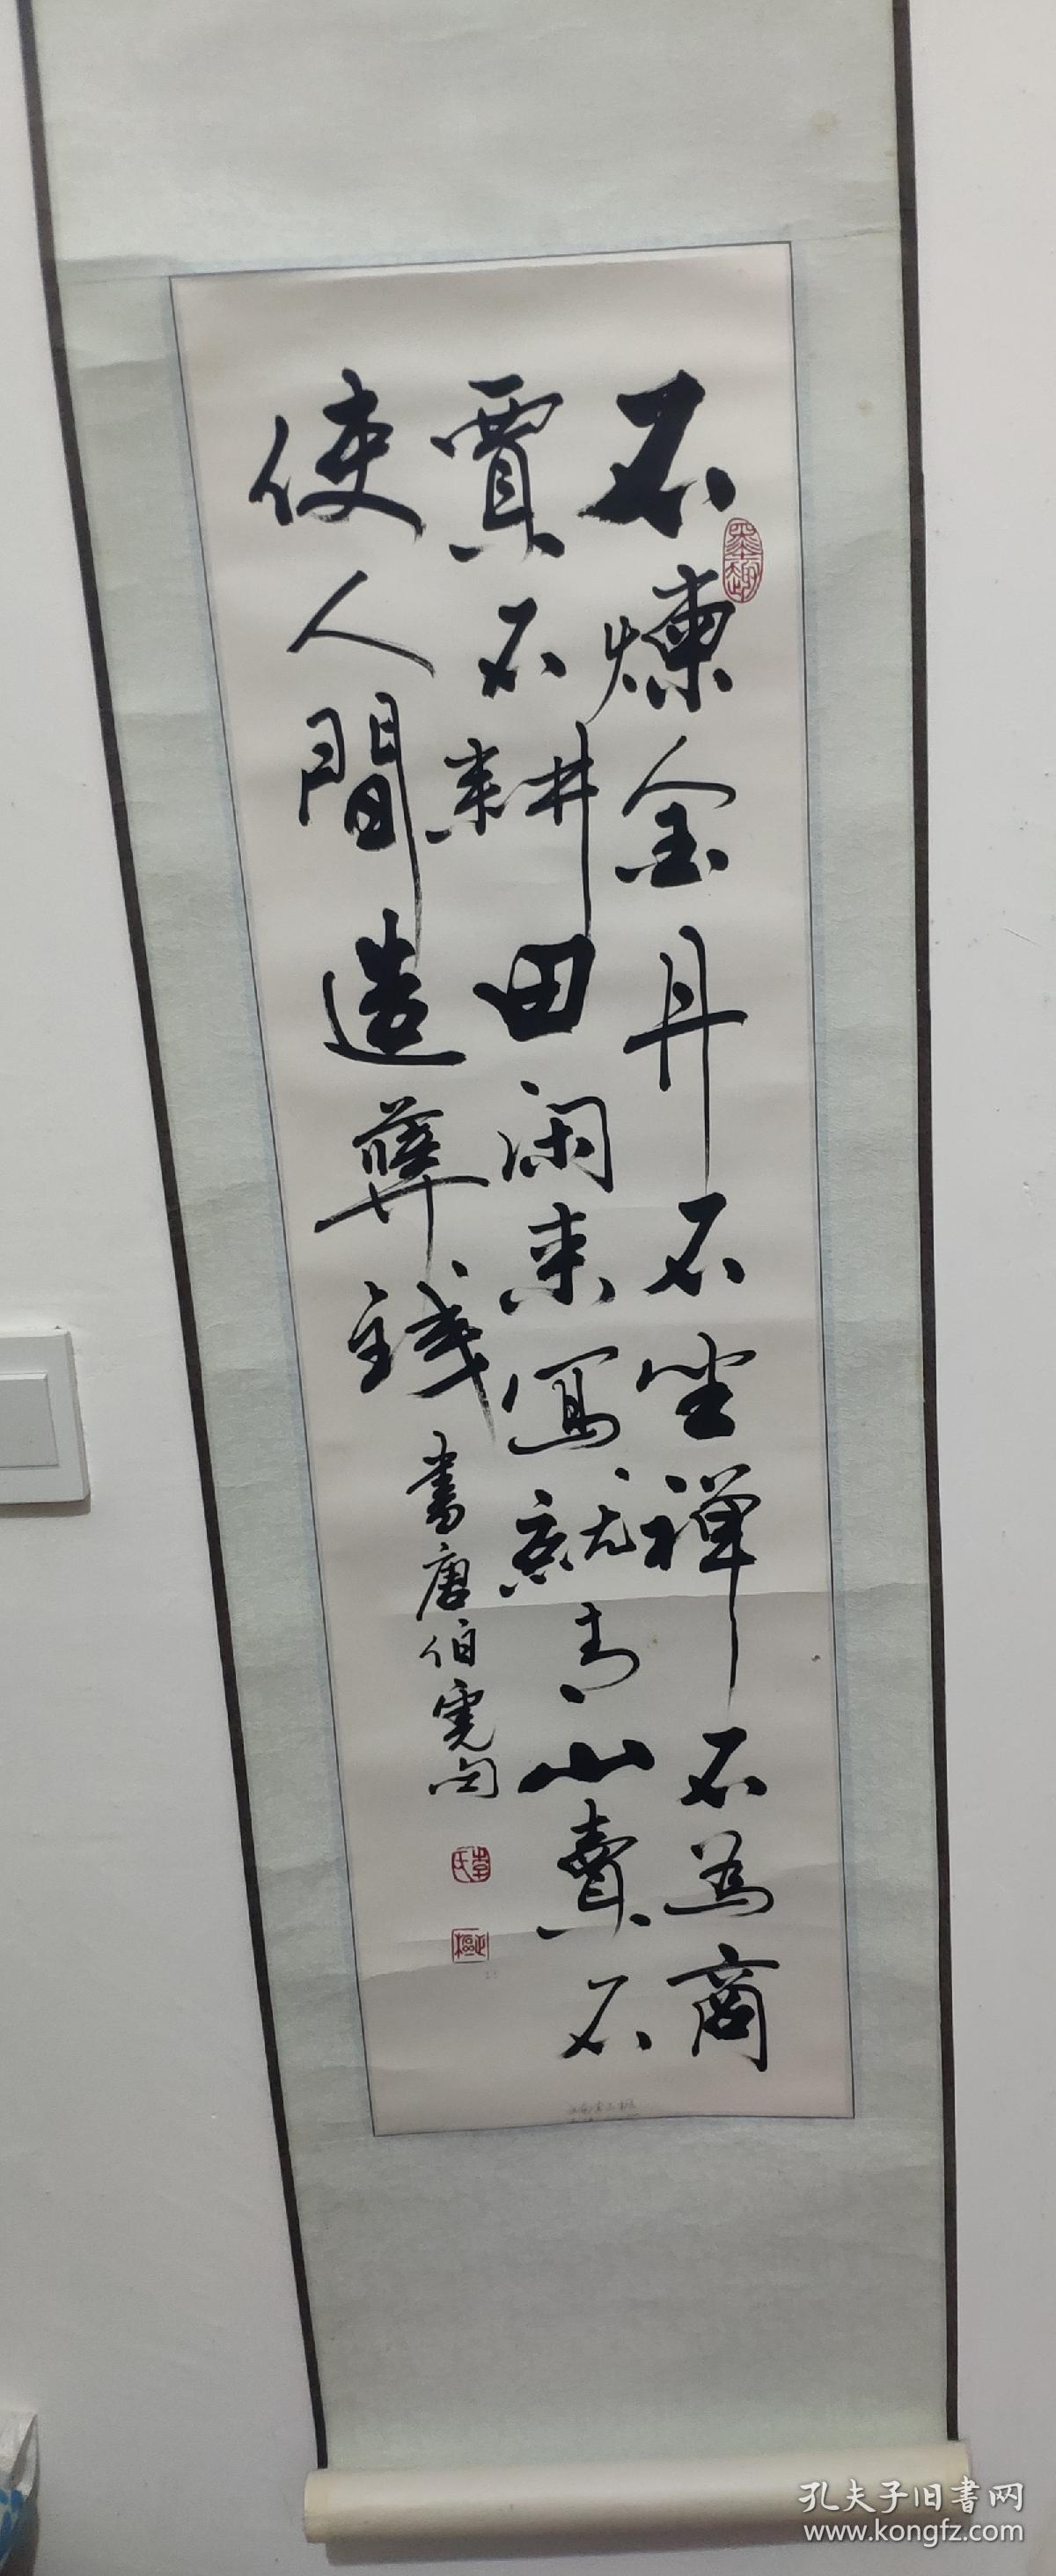 不煉金丹不坐禅不為商
賈不耕田闲来寫就青山賣不
使人間造孽錢
書唐伯虎句
墨趣
李氏
孔夫子旧書网
www.kongfz.com